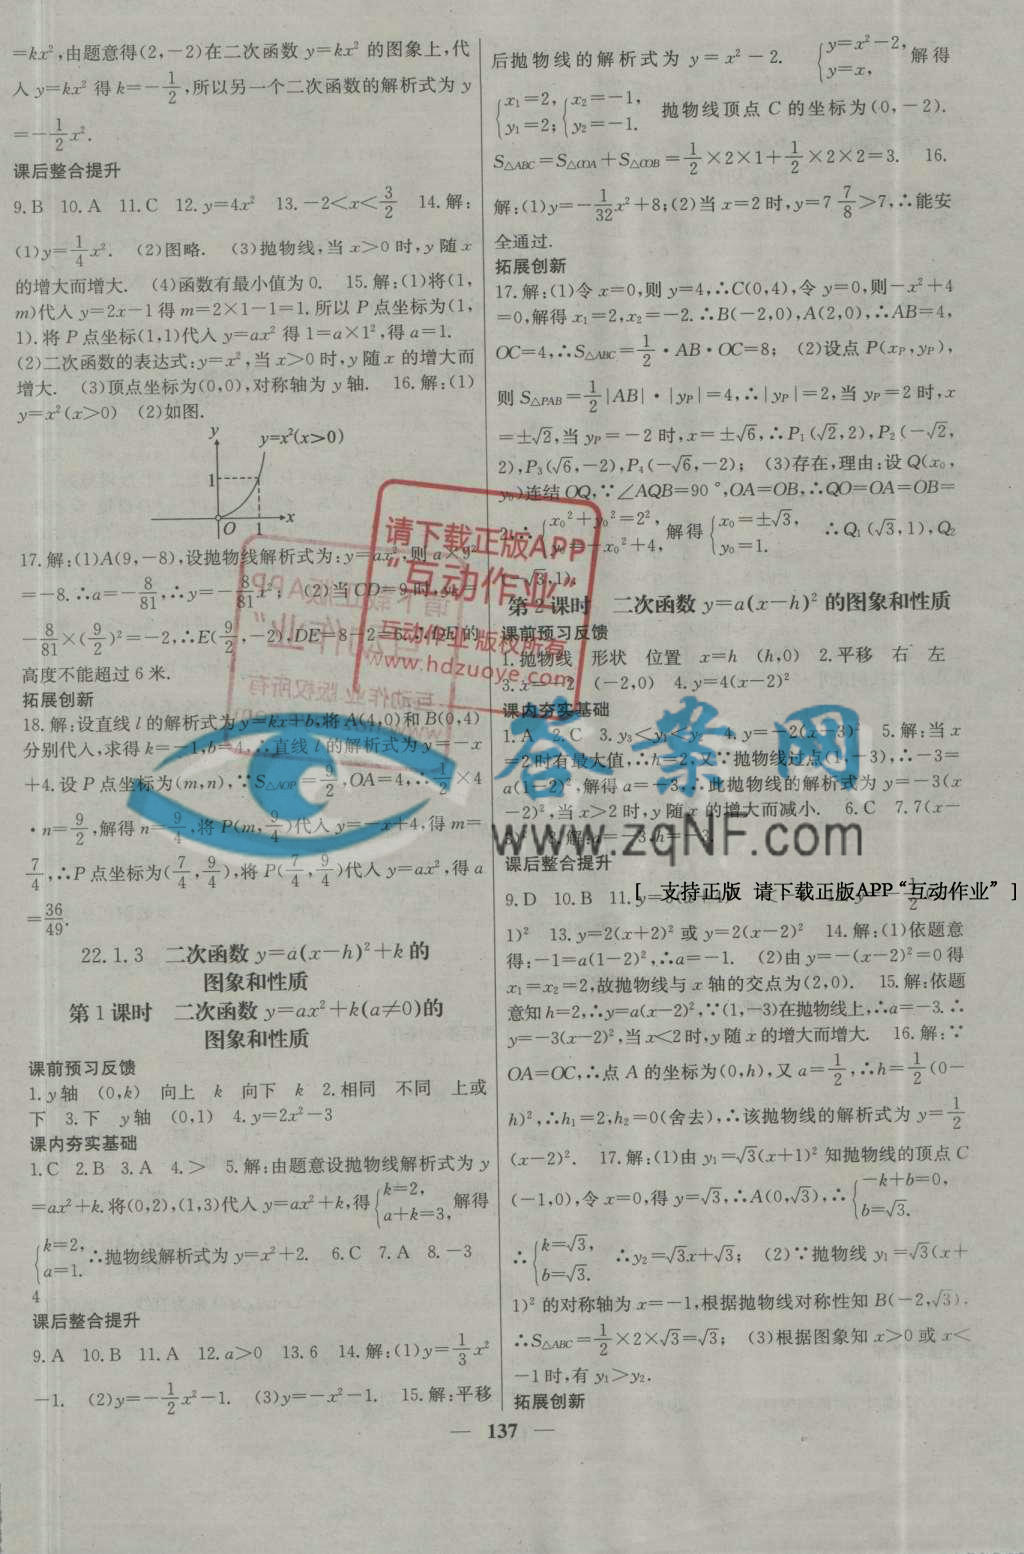 =kx²,由题意得(2,-2)在二次函数 y=kx² 的图象上,代
入 y=kx² 得 k=-1/2,所以另一个二次函数的解析式为 y
=-1/2x².
课后整合提升
9.B 10.A 11.C 12.y=4x² 13.-2<x<3/2 14.解:
(1)y=1/4x². (2)图略. (3)抛物线,当 x>0 时,y 随 x
的增大而增大. (4)函数有最小值为 0. 15.解:(1)将(1,
m)代入 y=2x-1 得 m=2×1-1=1.所以 P 点坐标为(1,
1).将 P 点坐标(1,1)代入 y=ax² 得 1=a×1²,得 a=1.
(2)二次函数的表达式:y=x²,当 x>0 时,y 随 x 的增大而
增大. (3)顶点坐标为(0,0),对称轴为 y 轴. 16.解:(1)
y=x²(x>0) (2)如图.
y
y=x²(x>0)
1
O 1 x
17.解:(1)A(9,-8),设抛物线解析式为:y=ax²,则 a×9²
=-8.∴a=-8/81,∴y=-8/81x²; (2)当 CD=9 时,
-8/81×(9/2)²=-2,∴E(9/2,-2),DE=8-2=6.∴DE 的
高度不能超过 6 米.
拓展创新
18.解:设直线 l 的解析式为 y=kx+b,将 A(4,0)和 B(0,4)
分别代入,求得 k=-1,b=4,∴直线 l 的解析式为 y=-x
+4.设 P 点坐标为(m,n),∵S△AOP=9/2,OA=4,∴1/2×4
·n=9/2,解得 n=9/4,将 P(m,9/4)代入 y=-x+4,得 m=
7/4,∴P 点坐标为(7/4,9/4),将 P(7/4,9/4)代入 y=ax²,得 a
=36/49.
22.1.3 二次函数 y=a(x-h)²+k 的
图象和性质
第 1 课时 二次函数 y=ax²+k(a≠0)的
图象和性质
课前预习反馈
1.y 轴 (0,k) 向上 k 向下 k 2.相同 不同 上或
下 3.下 y 轴 (0,1) 4.y=2x²-3
课内夯实基础
1.C 2.B 3.A 4.> 5.解:由题意设抛物线解析式为 y
=ax²+k.将(0,2),(1,3)代入 y=ax²+k,得{k=2, a+k=3,解得
{k=2, a=1. ∴抛物线解析式为 y=x²+2. 6.C 7.A 8.-3
4
课后整合提升
9.A 10.B 11.A 12.a>0 13.6 14.解:(1)y=1/3x²
-1. (2)y=-1/2x²-1. (3)y=-x²-1. 15.解:平移
后抛物线的解析式为 y=x²-2. {y=x²-2, y=x, 解得
{x₁=2, y₁=2; {x₂=-1, y₂=-1. 抛物线顶点 C 的坐标为(0,-2).
S△ABC=S△COA+S△COB=1/2×2×1+1/2×2×2=3. 16.
解:(1)y=-1/32x²+8;(2)当 x=2 时,y=7 7/8>7,∴能安
全通过.
拓展创新
17.解:(1)令 x=0,则 y=4,∴C(0,4),令 y=0,则-x²+4
=0,解得 x₁=2,x₂=-2.∴B(-2,0),A(2,0),∴AB=4,
OC=4,∴S△ABC=1/2·AB·OC=8; (2)设点 P(xP,yP),
则 S△PAB=1/2|AB|·|yP|=4,∴|yP|=2,当 yP=2 时,x
=±√2,当 yP=-2 时,x=±√6,∴P₁(√2,2),P₂(-√2,
2),P₃(√6,-2),P₄(-√6,-2); (3)存在,理由:设 Q(x₀,
y₀)连结 OQ,∵∠AQB=90°,OA=OB,∴QO=OA=OB=
2,∴{x₀²+y₀²=2², y₀=-x₀²+4, 解得{x₀=±√3, y₀=1. ∴Q₁(√3,1),Q₂
(-√3,1).
第 2 课时 二次函数 y=a(x-h)² 的图象和性质
课前预习反馈
1.抛物线 形状 位置 x=h (h,0) 2.平移 右 左
3.x=-2 (-2,0) 4.y=4(x-2)²
课内夯实基础
1.A 2.C 3.y₃<y₁<y₂ 4.y=-2(x-3)² 5.解:当 x
=2 时有最大值,∴h=2,又∵抛物线过点(1,-3),∴-3=
a(1-2)²,解得 a=-3,∴此抛物线的解析式为 y=-3(x
-2)²,当 x>2 时,y 随 x 的增大而减小. 6.C 7.7(x-
课后整合提升
9.D 10.B 11.
1)² 13.y=2(x+2)² 或 y=2(x-2)² 14.解:(1)依题意
得:-1=a(1-2)²,∴a=-1. (2)由 y=-(x-2)²=0 得
x₁=x₂=2,故抛物线与 x 轴的交点为(2,0). 15.解:依题
意知 h=2,∴y=a(x-2)²,∵(1,-3)在抛物线上,∴a=-3.∴
y=-3(x-2)²,当 x<2 时,y 随 x 的增大而增大. 16.解:∵
OA=OC,∴点 A 的坐标为(0,h),又 a=1/2,∴h=1/2(0-
h)²,∴h₁=2,h₂=0(舍去),∴该抛物线的解析式为 y=1/2
(x-2)². 17.解:(1)由 y₁=√3(x+1)² 知抛物线的顶点 C
(-1,0),令 x=0,得 y=√3,∴A(0,√3),∴{-k+b=0, b=√3.
∴{k=√3, b=√3. ∴y₂=√3x+√3; (2)∵抛物线 y₁=√3(x+
1)² 的对称轴为 x=-1,根据抛物线对称性知 B(-2,√3).
∴S△ABC=1/2×2×√3=√3; (3)根据图象知 x>0 或 x<
-1 时,有 y₁>y₂.
拓展创新
— 137 —
请下载正版APP
"互动作业"
互动作业·版权所有
www.hdzuoye.com
答案网
www.zqNF.com
[ 支持正版 请下载正版APP"互动作业" ]